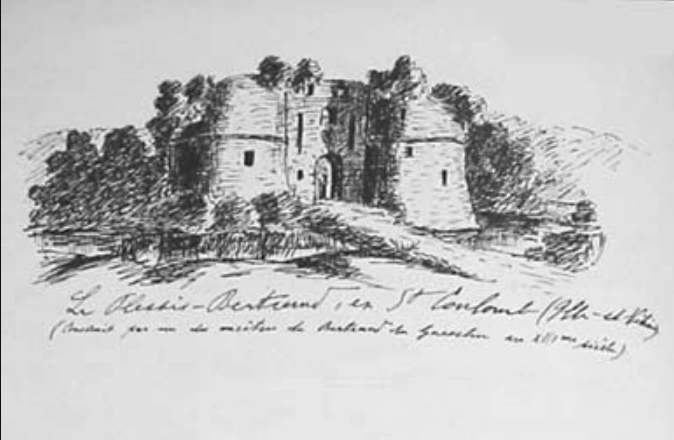 Le Plessis-Bertrand, en St Coulomb (Ille-et-Vilaine)
(Construit par un des ancêtres de Bertrand du Guesclin au XIIIme siècle)